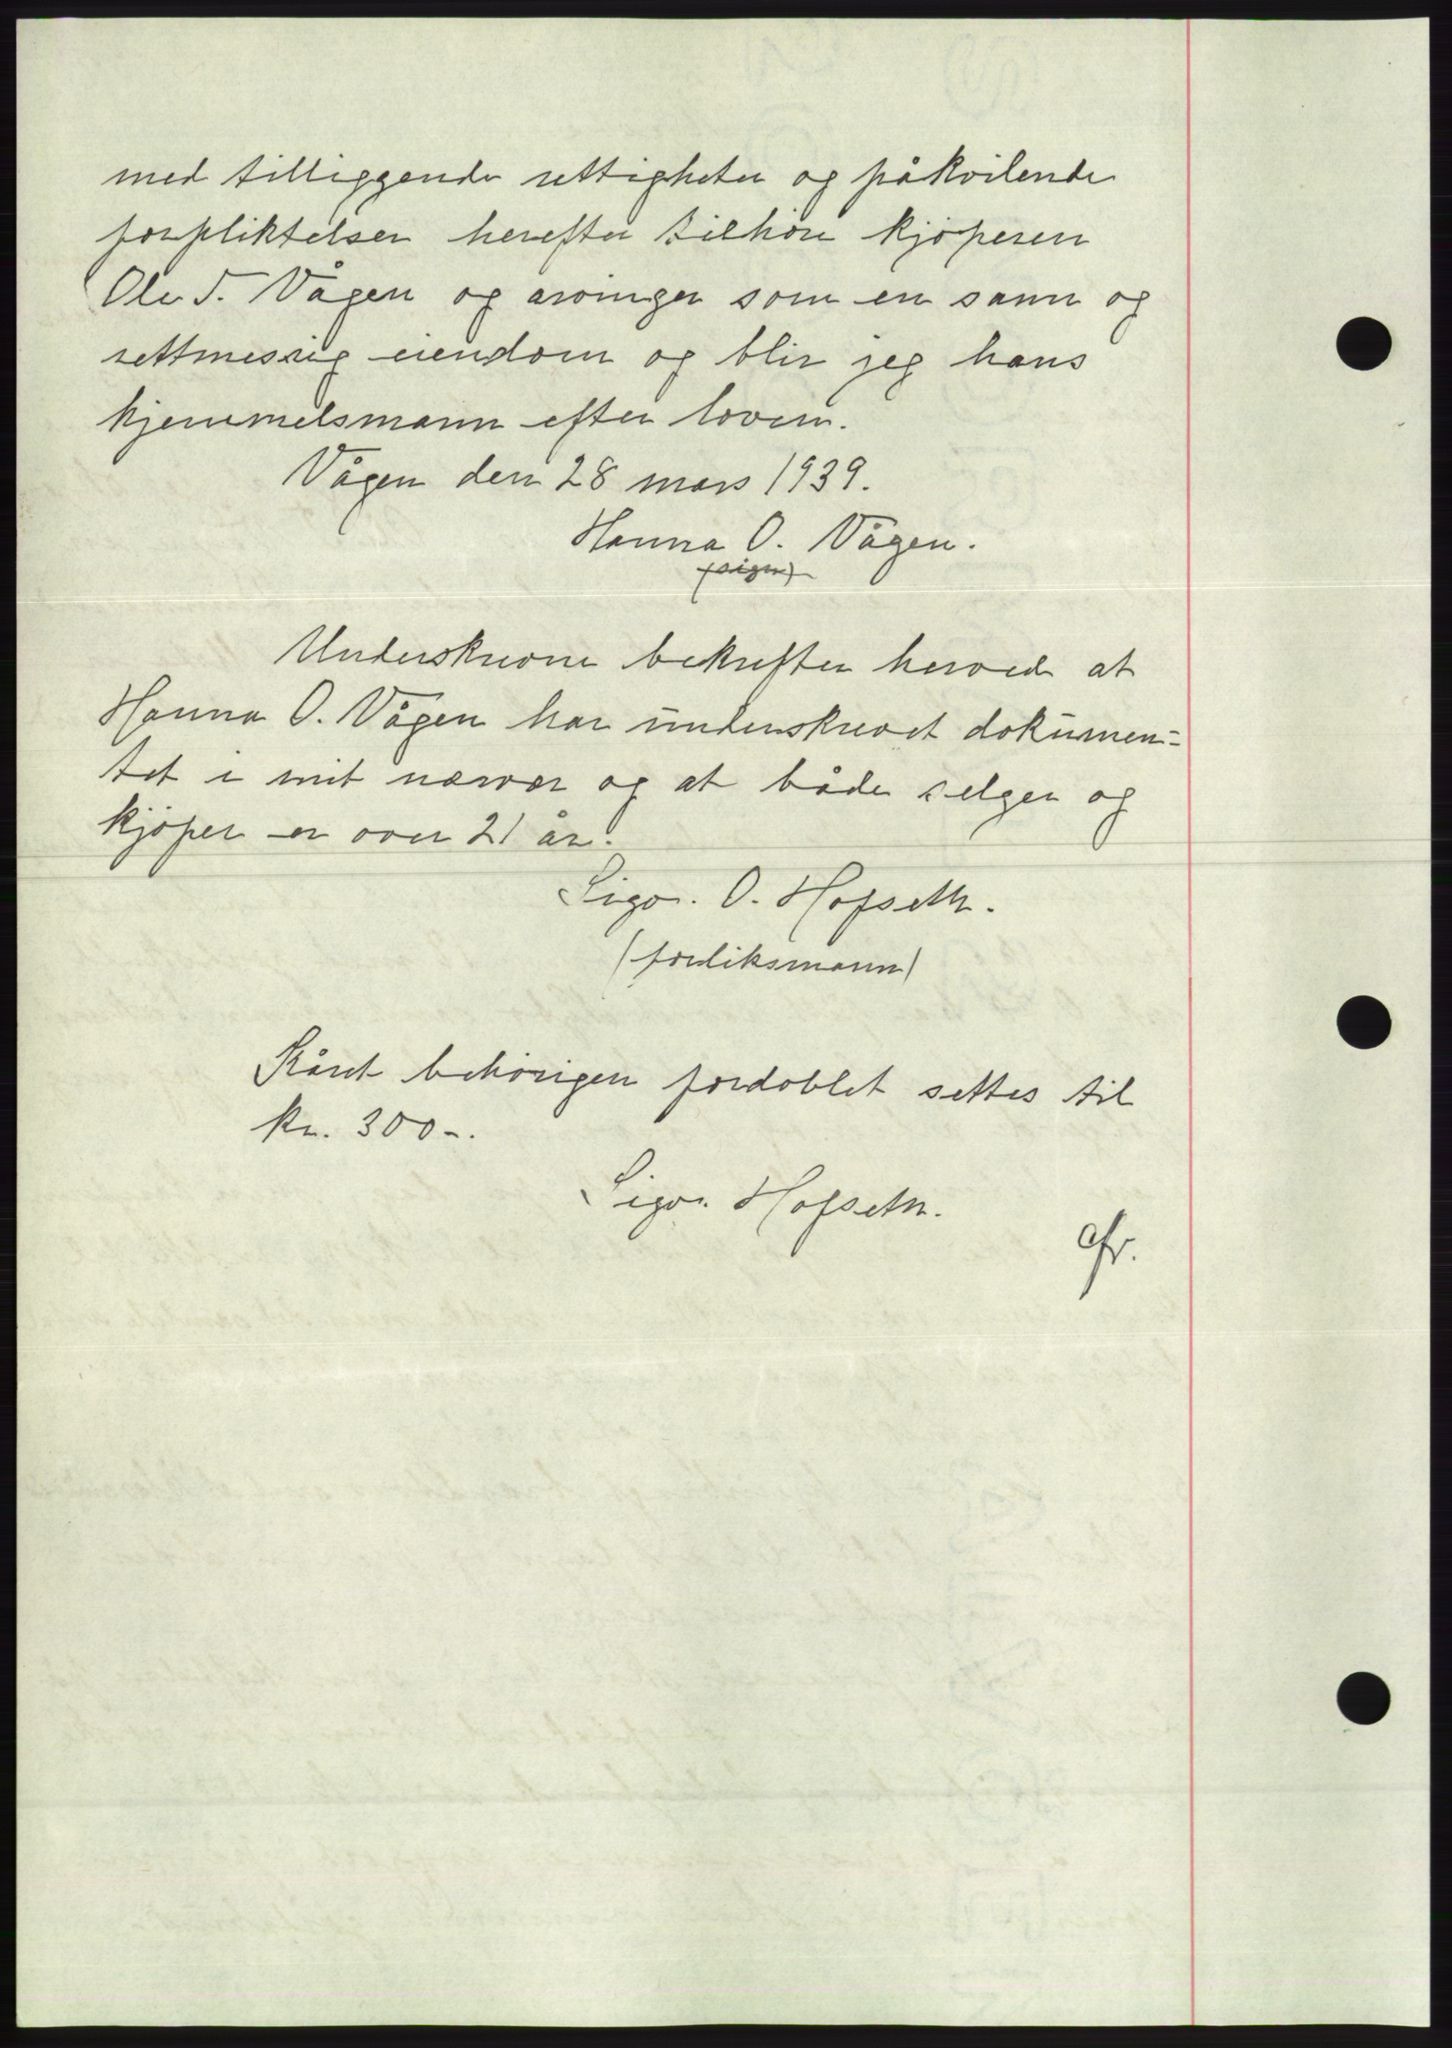 med tilliggende rettigheter og påkvilende
forpliktelser herefter tilhøre kjøperen
Ole T. Vågen og arvinger som en sann og
rettmessig eiendom og blir jeg hans
hjemmelsmann efter loven.
Vågen den 28 mars 1939.
Hanna O. Vågen.
(sign)
Underskrevne bekrefter herved at
Hanna O. Vågen har underskrevet dokumen-
tet i mit nærvær og at både selger og
kjøper er over 21 år.
Sigv. O. Hofseth.
(forliksmann)
kr. 300-.
behørigen fordoblet settes til
Sigv. Hofseth.